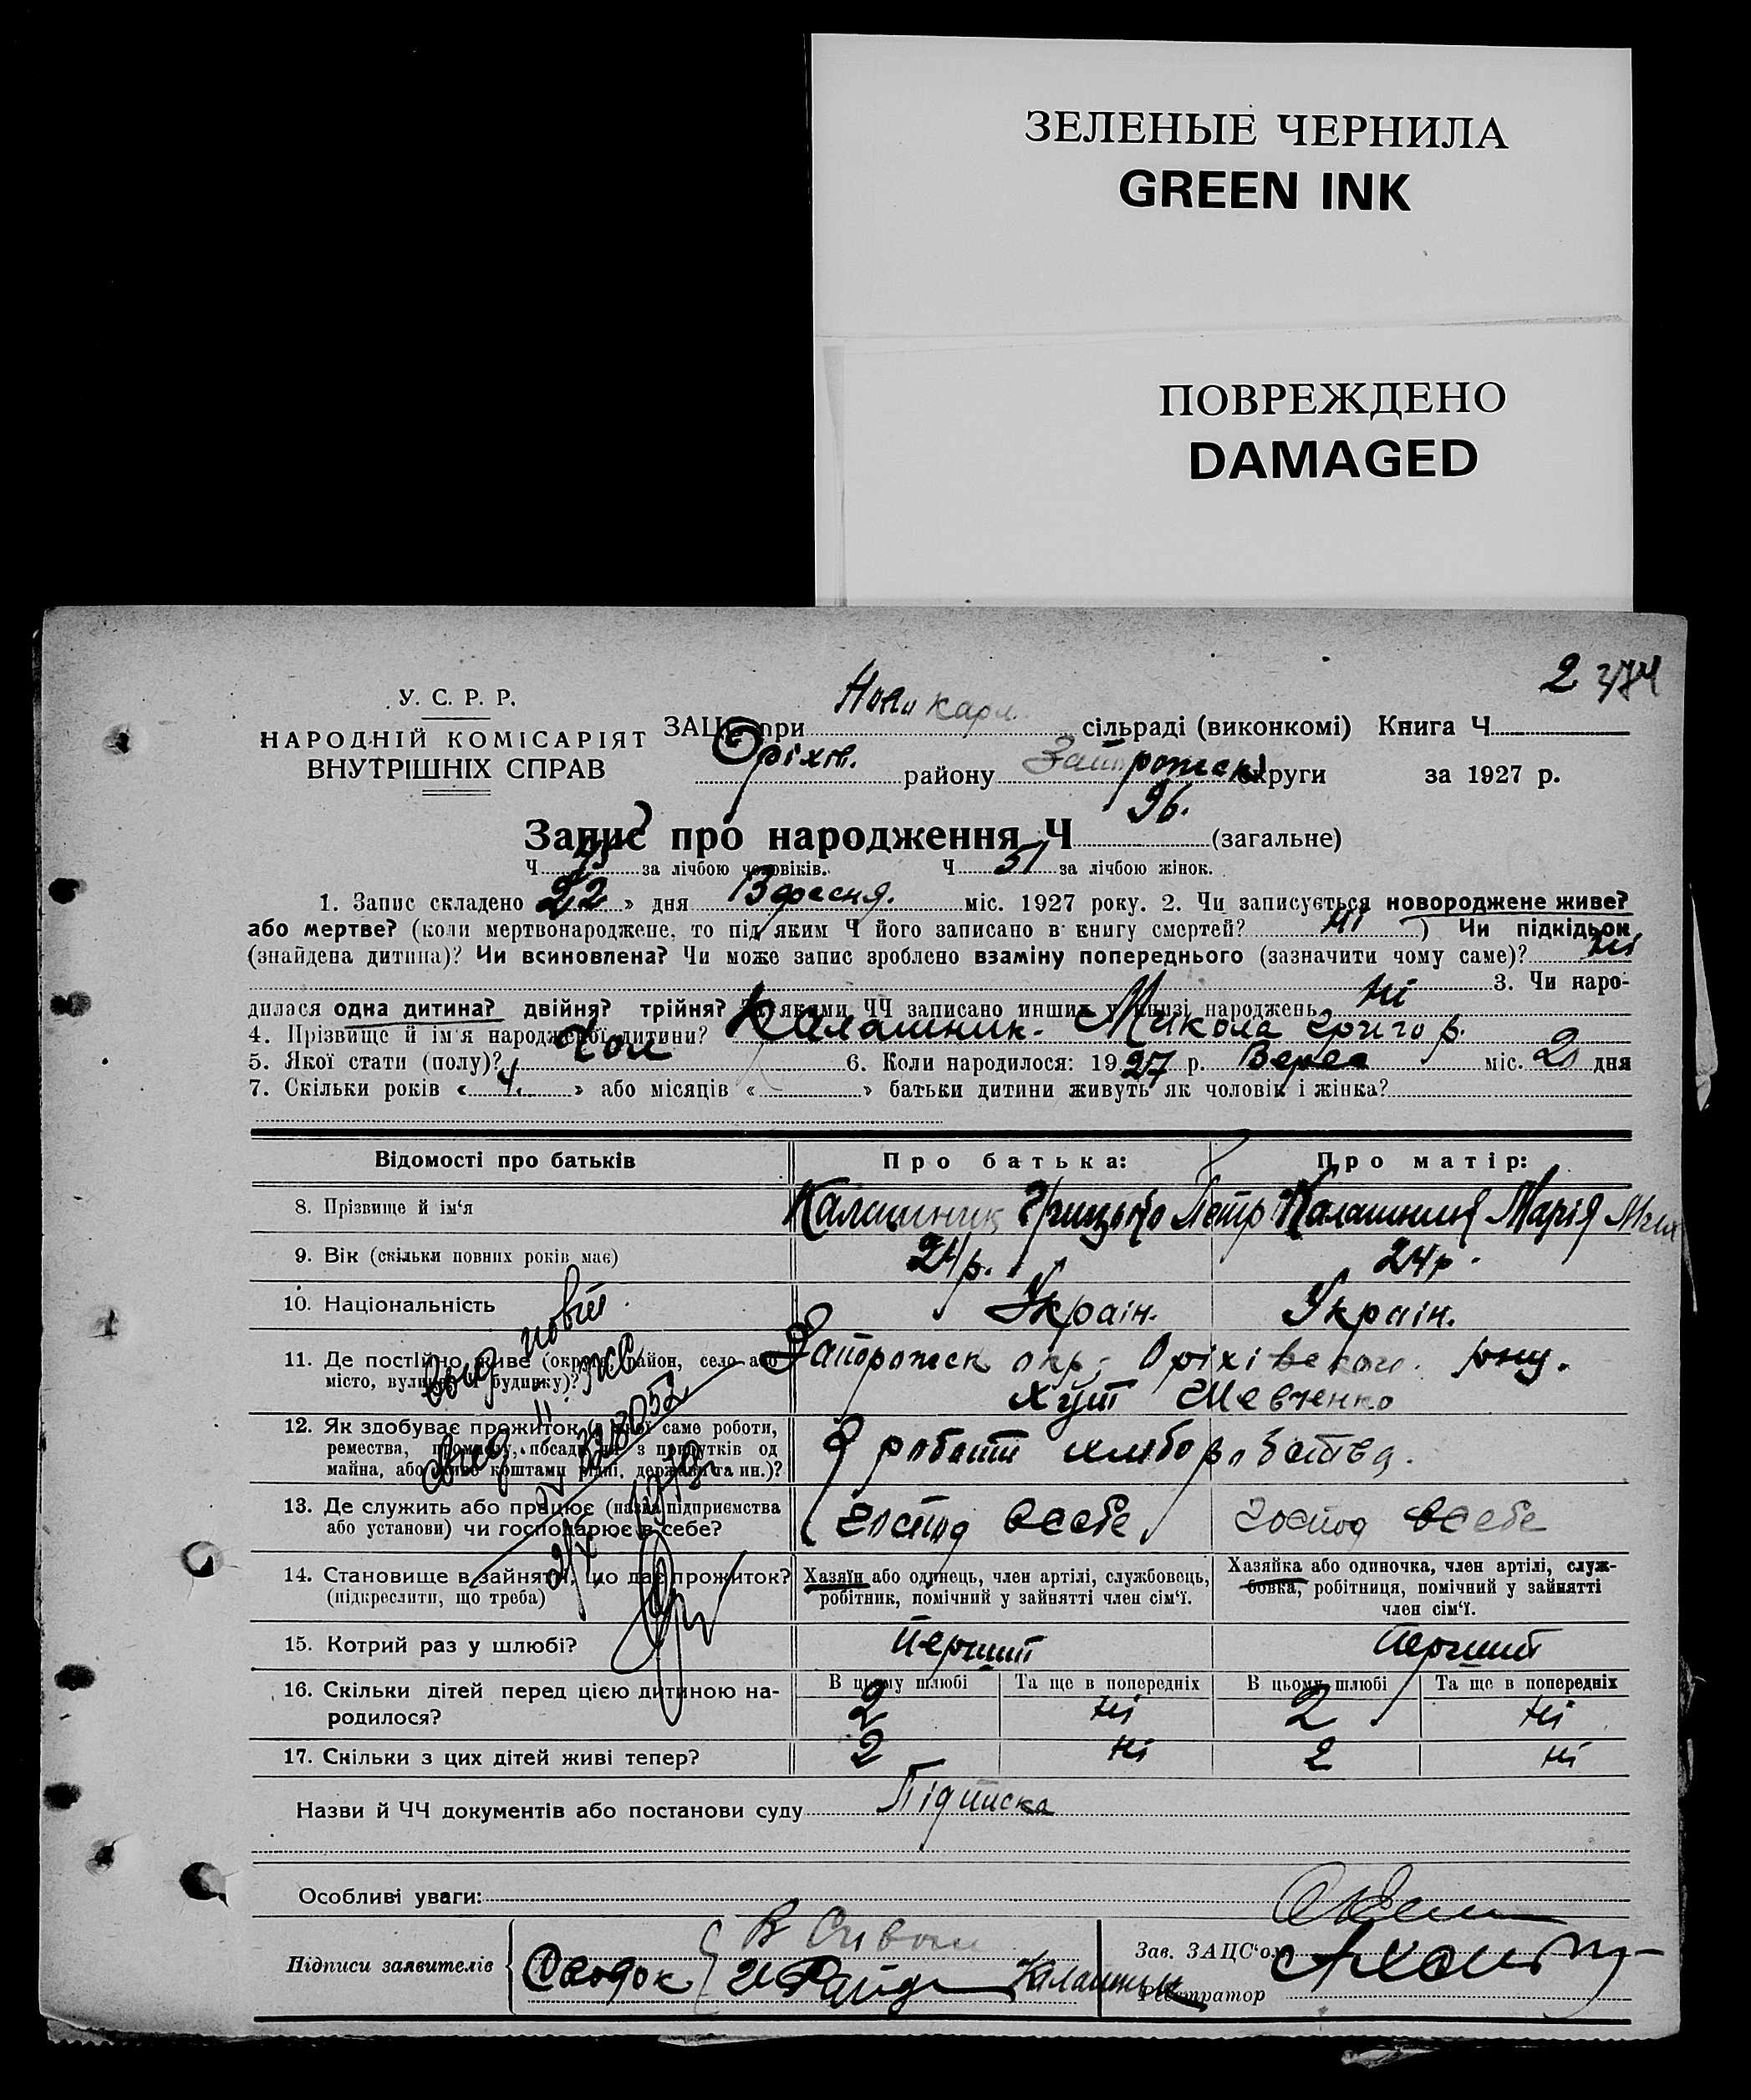 ЗЕЛЕНЫЕ ЧЕРНИЛА
GREEN INK
ПОВРЕЖДЕНО
DAMAGED
2 374
У. С. Р. Р.
НАРОДНІЙ КОМІСАРІЯТ
ВНУТРІШНІХ СПРАВ
ЗАЦС при Ново Карл. сільраді (виконкомі) Книга Ч
Оріхів. району Запоротськ округи за 1927 р.
Запис про народження Ч 96. (загальне)
Ч 45 за лічбою чоловіків. Ч 51 за лічбою жінок.
1. Запис складено 22 » дня Вересня. міс. 1927 року. 2. Чи записується новороджене живе?
або мертве? (коли мертвонароджене, то під яким Ч його записано в книгу смертей? ні ) Чи підкідьок
(знайдена дитина)? Чи всиновлена? Чи може запис зроблено взаміну попереднього (зазначити чому саме)? ні
3. Чи наро-
дилася одна дитина? двійня? трійня? За якими ЧЧ записано инших у книзі народжень ні
4. Прізвище й ім'я народженої дитини? Калашник. Микола Григор.
5. Якої стати (полу)? Чол 6. Коли народилося: 1927 р. Верес міс. 2 дня
7. Скільки років « 4. » або місяців « » батьки дитини живуть як чоловік і жінка?
Відомості про батьків Про батька: Про матір:
8. Прізвище й ім'я Калашник Грицько Петр Калашник Марія
9. Вік (скільки повних років має) 24 р. 24 р.
10. Національність Украін. Украін.
11. Де постійно живе (округа, район, село або Запоротск окр. Оріхівського рону.
місто, вулиця й будинку)? Хут Шевченко
12. Як здобуває прожиток (з якої саме роботи, З роботи хліборобства.
ремества, промислу, посади чи з прибутків од
майна, або живе коштами рідні, держави та ин.)?
13. Де служить або працює (назва підприємства Господ в себе Господ в себе
або установи) чи господарює в себе?
14. Становище в зайнятті, що дає прожиток? Хазяїн або одинець, член артілі, службовець, Хазяйка або одиночка, член артілі, служ-
(підкреслити, що треба) робітник, помічний у зайнятті член сім'ї. бовка, робітниця, помічний у зайнятті
член сім'ї.
15. Котрий раз у шлюбі? Перший Перший
В цьому шлюбі Та ще в попередніх В цьому шлюбі Та ще в попередніх
16. Скільки дітей перед цією дитиною на-
родилося? 2 ні 2 ні
17. Скільки з цих дітей живі тепер? 2 ні 2 ні
Назви й ЧЧ документів або постанови суду Підписка
Особливі уваги:
Підписи заявителів Свідок Калашник
Зав. ЗАЦС'ом
Реєстратор